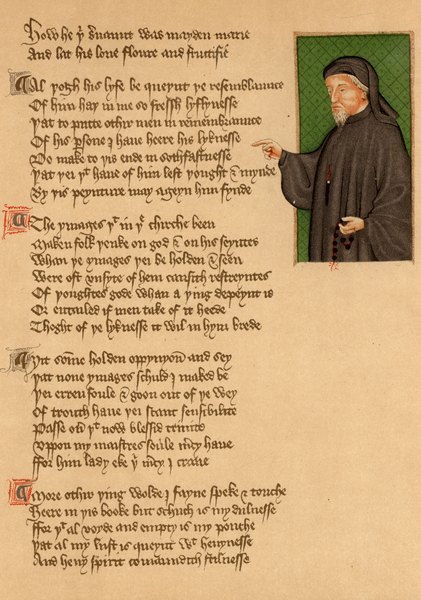 How he yͬ seruaunt was mayden marie
And lat his loue floure and fructifie
Al yogh his lyfe be queynt ye resemblaunce
Of him hay in me so fressh lyflynesse
Yat to putte othir men in remembraunce
Of his psone I haue heere his lyknesse
Do make to yis ende in sothfastnesse
Yat yei yͭ haue of him left yought & mynde
By yis peynture may ageyn him fynde
The ymages yͭ in yͤ chirche been
Maken folk yenke on god & on his seyntes
Whan ye ymages yei be holden & seen
Were oft vnsyte of hem causith restreyntes
Of youghtes gode whan a ying depeynt is
Or entailed if men take of it heede
Thoght of ye lyknesse it wil in hym brede
Yit some holden oppynyon and sey
Yat none ymages schuld I maked be
Yei erren foule & goon out of ye wey
Of trouth haue yei scant sensibilite
Passe ou yͭ now blessid trinite
Uppon my maistres soule mcy haue
ffor him lady eke yͥ mcy I craue
More othir ying wolde I fayne speke & touche
Heere in yis booke but schuch is my dulnesse
ffor yͭ al voyde and empty is my pouche
Yat al my lust is queynt wͭ heuynesse
And heuy spirit comaundith stilnesse